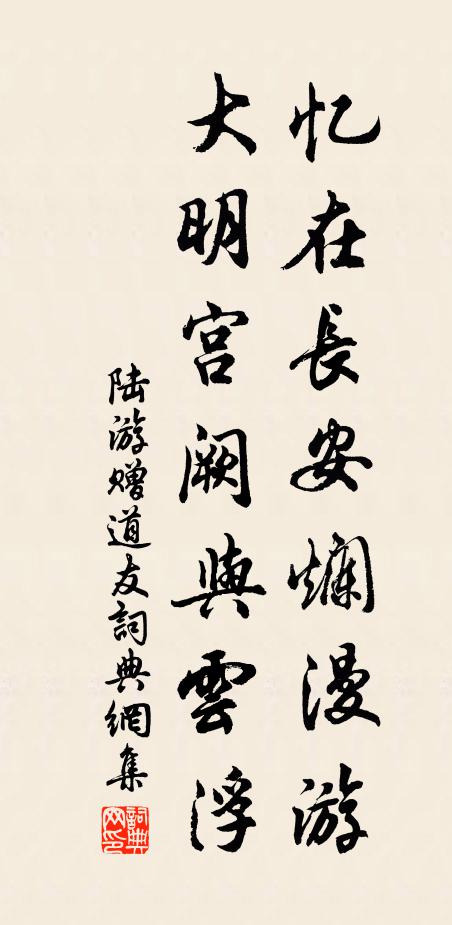 忆在長安爛漫游
大明宫阙與雲浮
陆游赠道友詞典網集
詞典网印